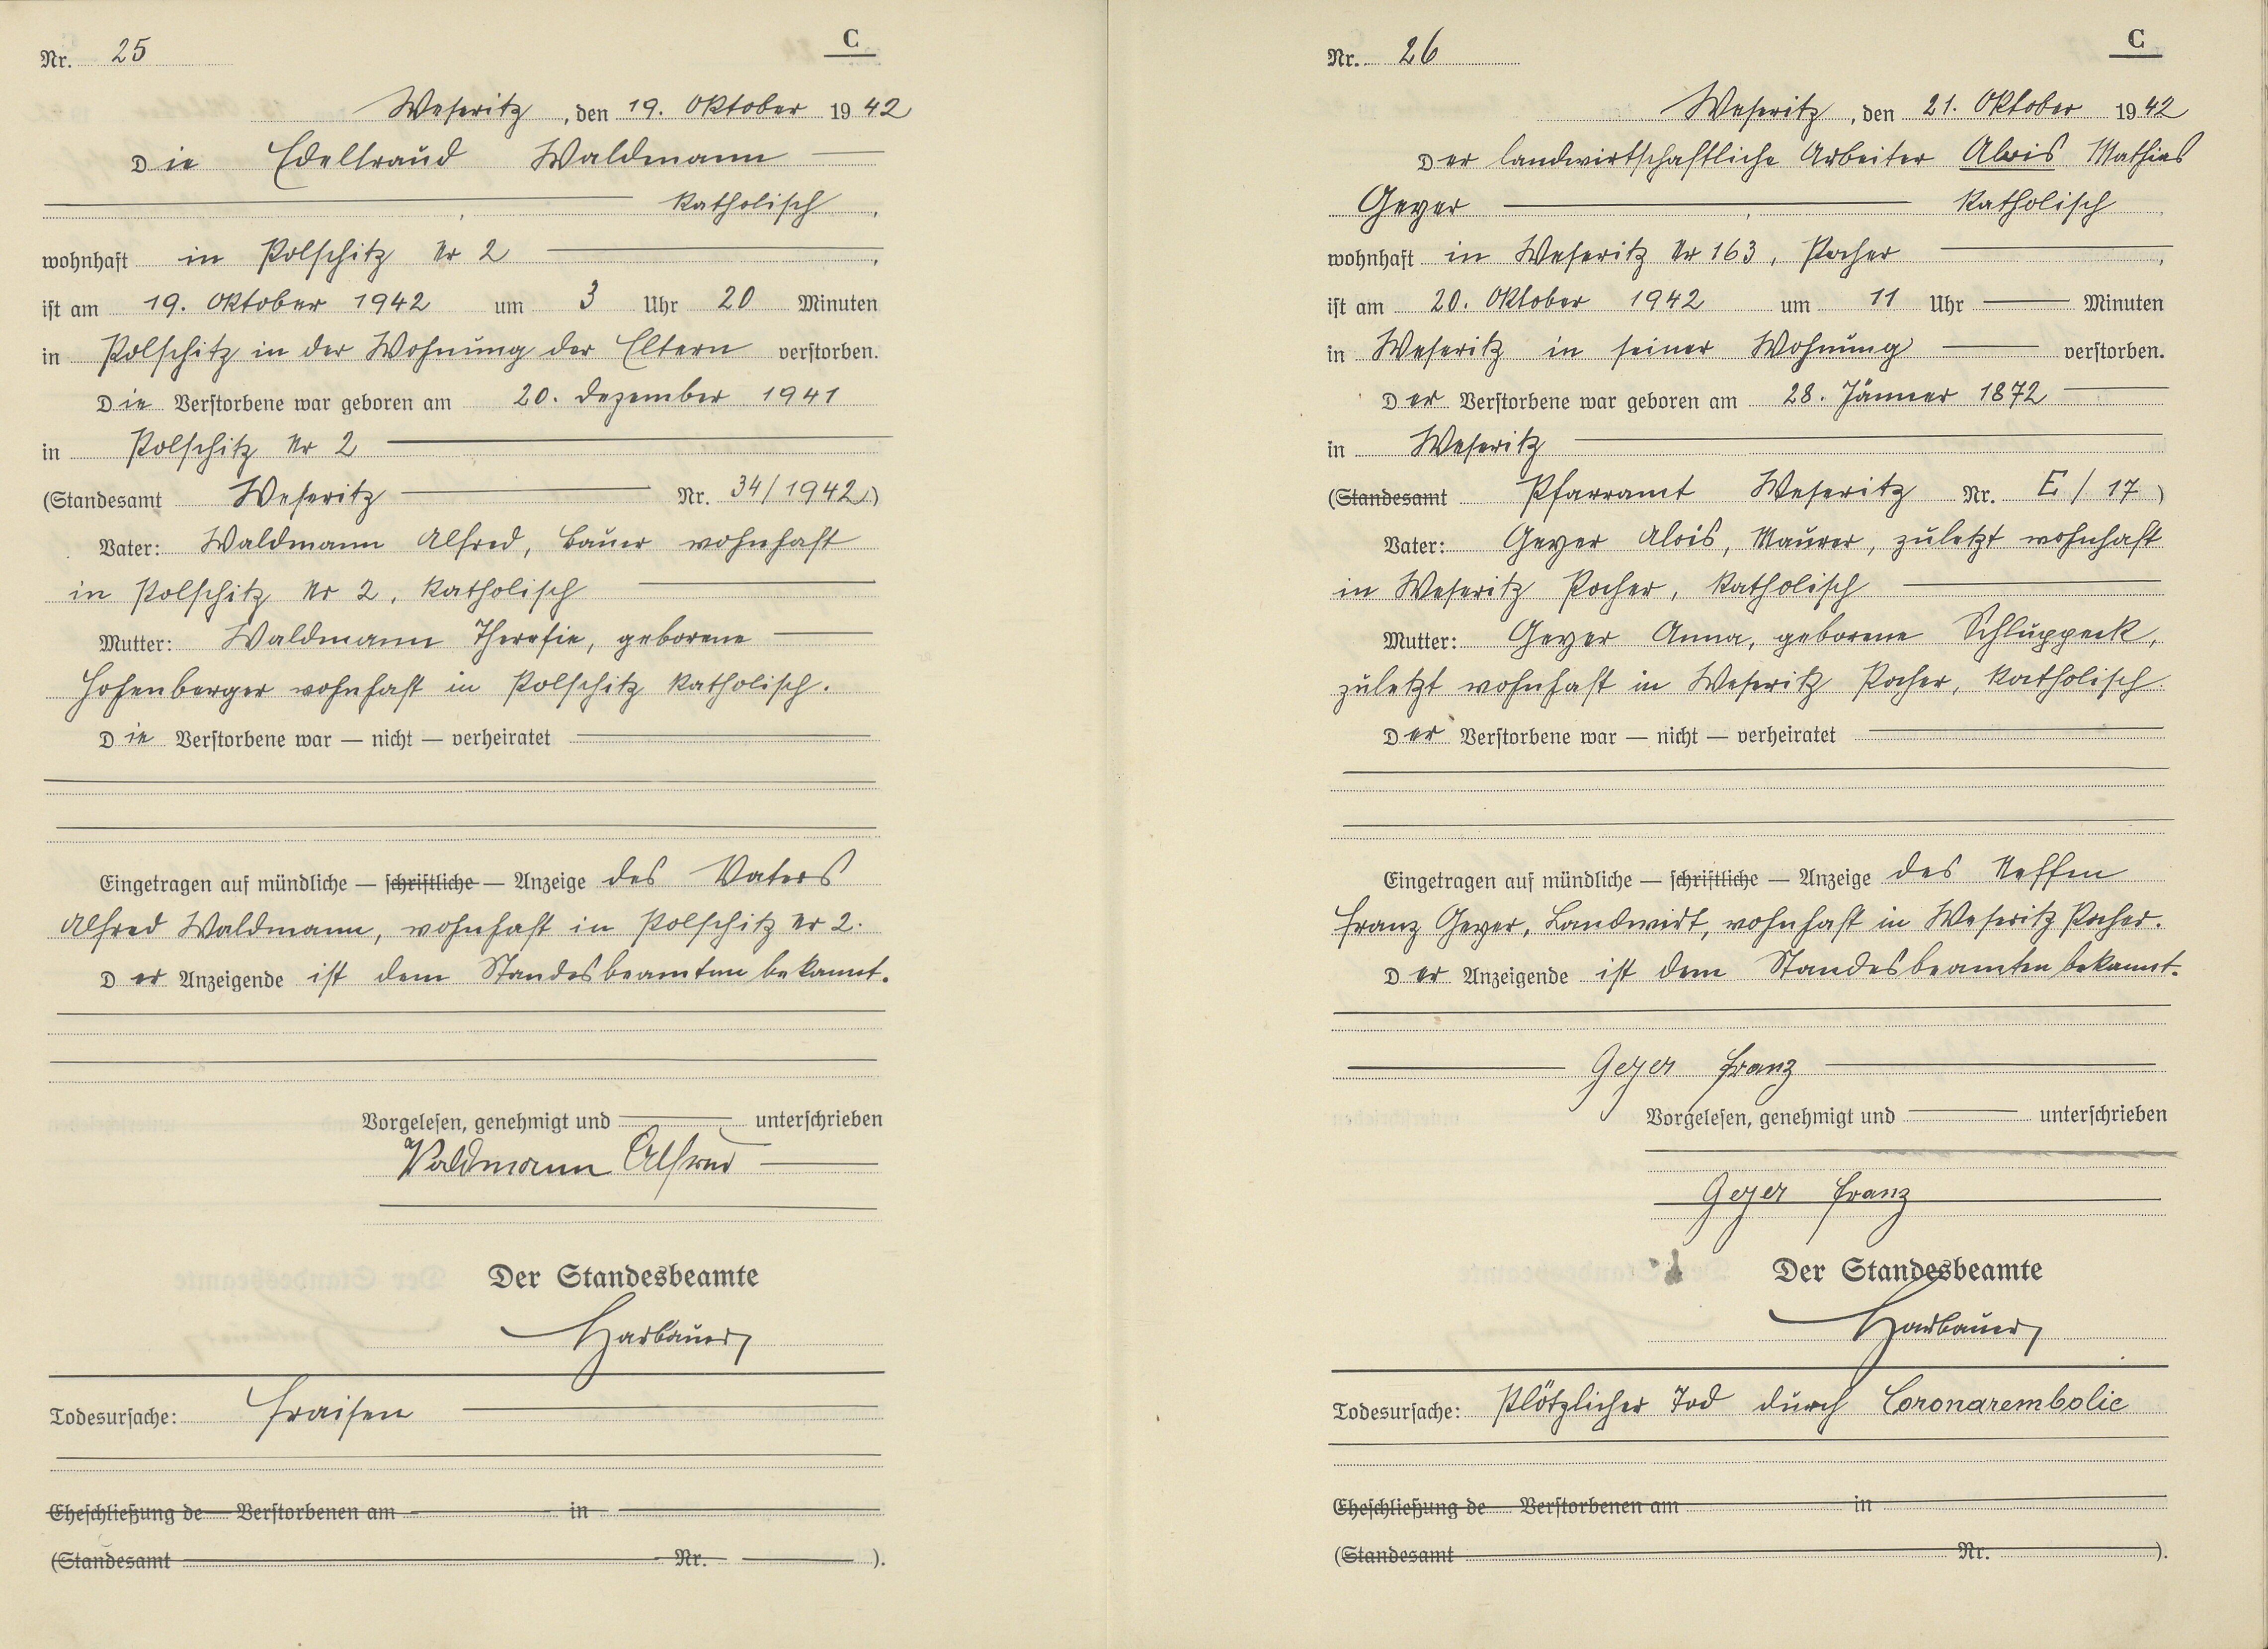 Nr. 25
C
Weseritz, den 19. Oktober 1942
Die Edeltraud Waldmann
katholisch,
wohnhaft in Polschitz Nr 2,
ist am 19. Oktober 1942 um 3 Uhr 20 Minuten
in Polschitz in der Wohnung der Eltern verstorben.
Die Verstorbene war geboren am 20. Dezember 1941
in Polschitz Nr 2
(Standesamt Weseritz Nr. 34/1942)
Vater: Waldmann Alfred, Bauer wohnhaft
in Polschitz Nr 2, katholisch
Mutter: Waldmann Theresie, geborene
Hohenberger wohnhaft in Polschitz katholisch.
Die Verstorbene war — nicht — verheiratet
Eingetragen auf mündliche — schriftliche — Anzeige des Vaters
Alfred Waldmann, wohnhaft in Polschitz Nr 2.
Der Anzeigende ist dem Standesbeamten bekannt.
Vorgelesen, genehmigt und unterschrieben
Waldmann Alfred
Der Standesbeamte
Harbauer
Todesursache: Fraisen
Eheschließung de Verstorbenen am in
(Standesamt Nr. ).
Nr. 26
C
Weseritz, den 21. Oktober 1942
Der landwirtschaftliche Arbeiter Alois Mathias
Geyer katholisch,
wohnhaft in Weseritz Nr 163, Pocher,
ist am 20. Oktober 1942 um 11 Uhr Minuten
in Weseritz in seiner Wohnung verstorben.
Der Verstorbene war geboren am 28. Jänner 1872
in Weseritz
(Standesamt Pfarramt Weseritz Nr. E/17)
Vater: Geyer Alois, Maurer, zuletzt wohnhaft
in Weseritz Pocher, katholisch
Mutter: Geyer Anna, geborene Schluppeck,
zuletzt wohnhaft in Weseritz Pocher, katholisch.
Der Verstorbene war — nicht — verheiratet
Eingetragen auf mündliche — schriftliche — Anzeige des Neffen
Franz Geyer, Landwirt, wohnhaft in Weseritz Pocher.
Der Anzeigende ist dem Standesbeamten bekannt.
Geyer Franz
Vorgelesen, genehmigt und unterschrieben
Geyer Franz
Der Standesbeamte
Harbauer
Todesursache: Plötzlicher Tod durch Coronarembolie
Eheschließung de Verstorbenen am in
(Standesamt Nr. ).